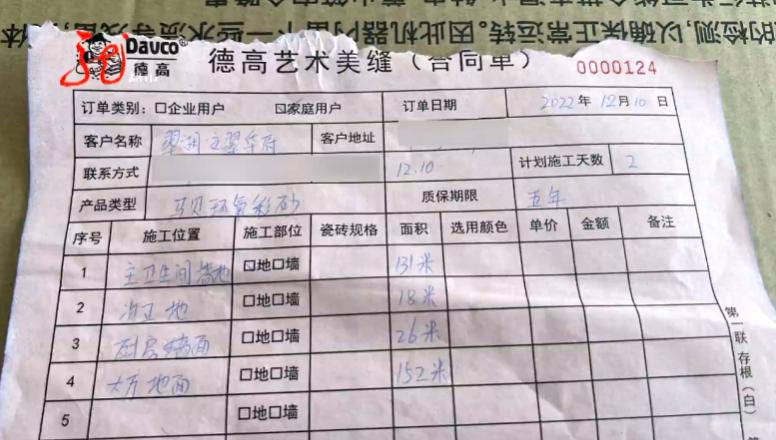 的检测,以确保正常运转。因此机器内留下一些水渍等残留,
Davco
德高
德高艺术美缝（合同单）
0000124
订单类别： □企业用户 ☑家庭用户 订单日期 2022年12月10日
客户名称 客户地址
联系方式 12.10 计划施工天数 2
产品类型 马贝环氧彩砂 质保期限 五年
序号 施工位置 施工部位 瓷砖规格 面积 选用颜色 单价 金额 备注
1 主卫生间墙地 ☑地□墙 131米
2 次卫地 □地□墙 18米
3 厨房墙面 □地□墙 26米
4 大厅地面 □地□墙 152米
5 □地□墙
第一联存根(白)